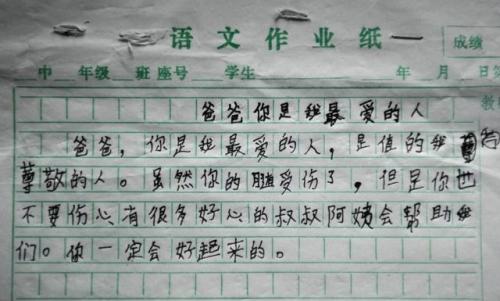 语文作业纸
成绩
中 年级 班 座号 学生 年 月 日
教
爸爸你是我最爱的人
爸爸，你是我最爱的人，是值的我
尊敬的人。虽然你的腿受伤了，但是你也
不要伤心有很多好心的叔叔阿姨会帮助我
们。你一定会好起来的。